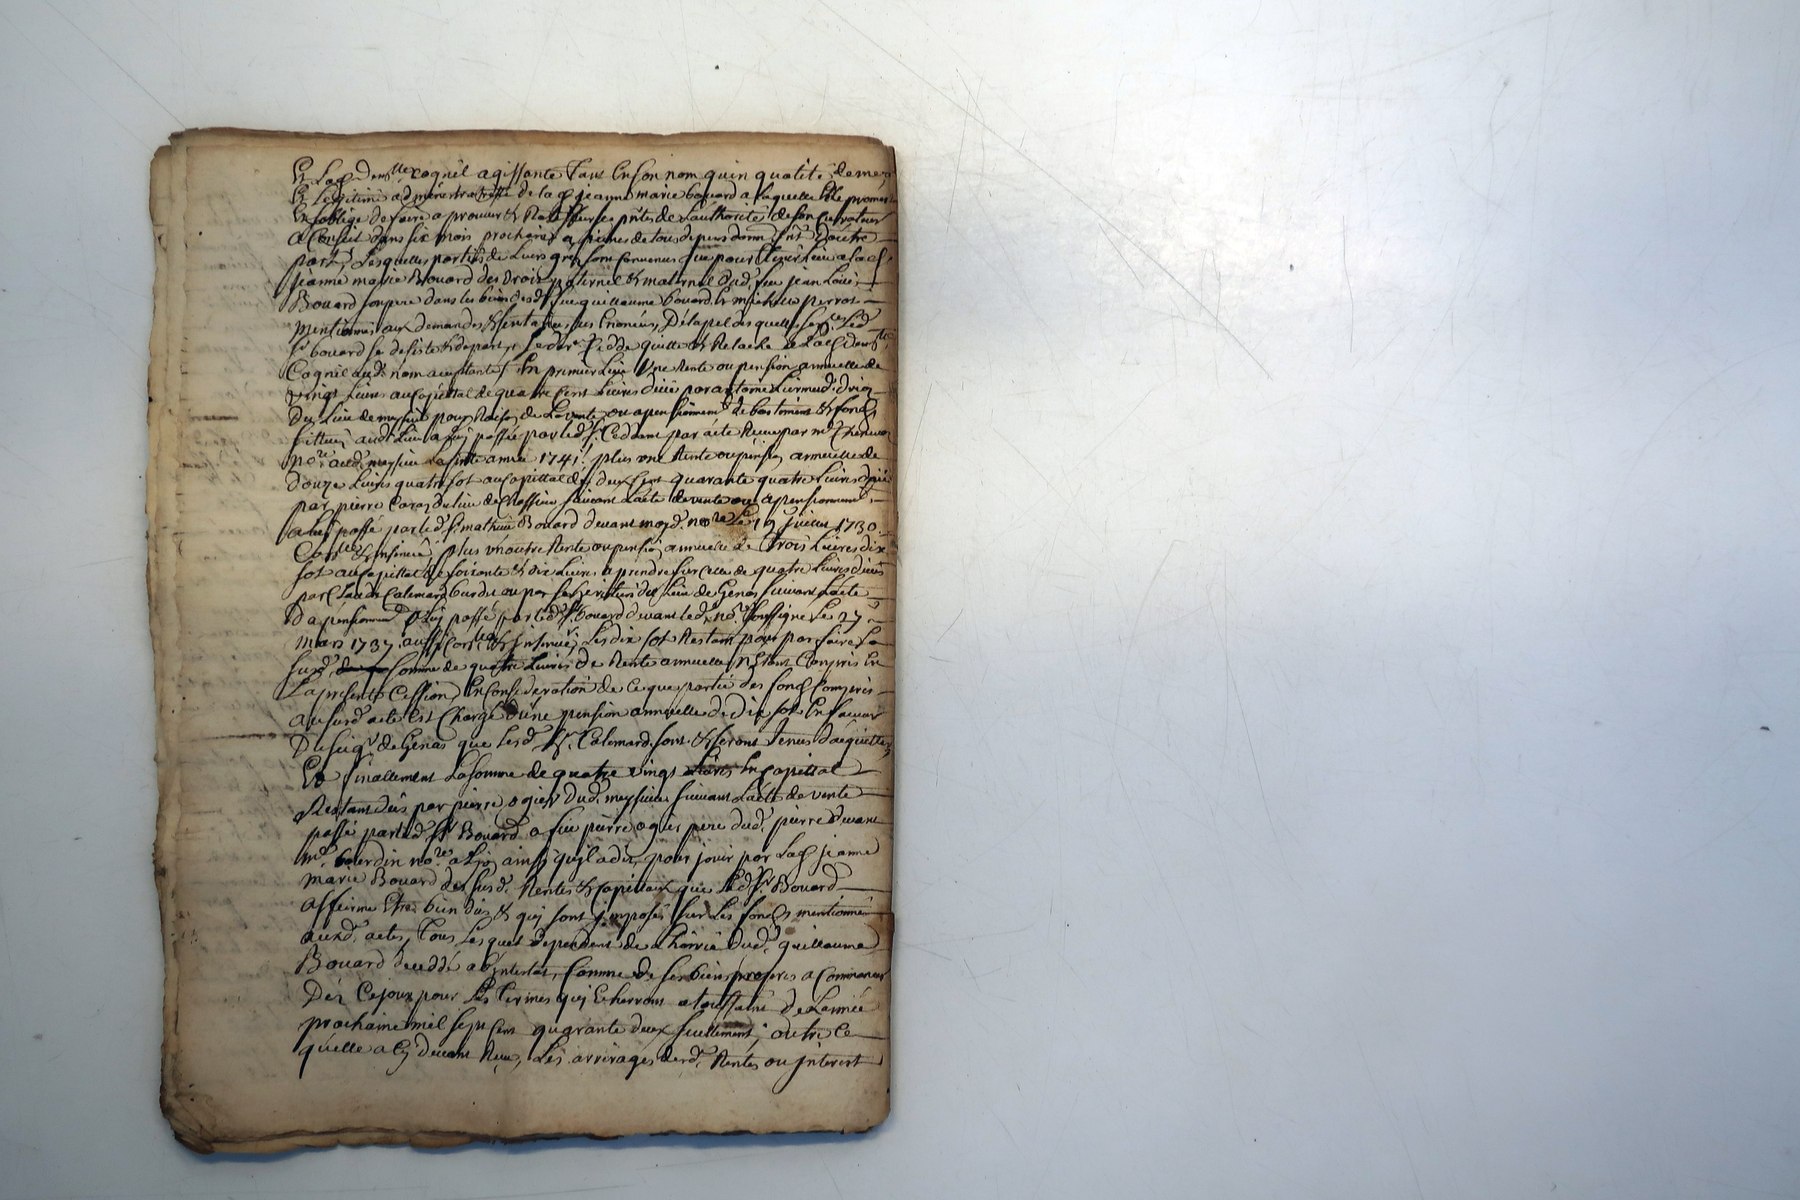 Et lad. dem.lle Cognil agissante tant en son nom qu'en qualité de mere
Et legitime administratresse de lad. jeanne marie bouard a laquelle Elle promet
Et s'oblige de faire aprouver & Ratiffier ces ptes de l'authorité de son Curateur
a Conseil dans six mois prochains a peines de tous depens dom. Int. d'autre
part, Lesquelles parties de Leurs gréz sont Convenues que pour tenir Lieu a lad.
jeanne marie Bouard des droits paternel & maternel dud. feu jean Louis
Bouard son pere dans les biens desd. feu guillaume bouard Et perrot
Mentionnés aux demandes & sentences sus Enoncées, De l'apel desquelles sentces Led.
Sr. bouard se desiste & depart, Led. Sr. Cedde quitte & Relache a lad. dem.lle
Cognil aud. nom acceptante, En premier Lieu Une Rente ou pension annuelle de
vingt Livres au Capittal de quatre Cent Livres düe par antoine
Du Lieu de meyssieu pour Raison de la vente ou apensionnemt de bastiment & fonds
sittués aud. Lieu a Luy passée par led. Sr. Ceddant par acte Receu par me.
nore. aud. meyssieu La pnte année 1741. plus une Rente ou pension annuelle de
douze Livres quatre sol au Capittal de deux Cent quarante quatre Livres düe
par pierre Caraz du Lieu de Chassieu suivant L'acte de vente ou apensionnemt.
a Luy passé par led. Sr. mathieu Bouard devant moyd. nore Le 19 1730
Conlle. & insinué, plus un'autre Rente ou pension annuelle de Trois Livres dix
sol au Capittal de soixante & dix Livres a prendre sur Celle de quatre Livres düe
par Claude Calemard ou par ses heritiers du Lieu de Genas suivant L'acte
D'apensionnemt. a Luy passé par led. Sr. bouard devant led. nore. soussigné Le 27
mars 1737. aussy Conlle. & insinué, Les dix sol Restant pour parfaire La
susd. somme de quatre Livres de Rente annuelle n'Etant Compris En
La presente Cession En Consideration de Ce que partie des fonds Compris
au susd. acte Est Chargé d'une pension annuelle de Dix sol En faveur
Du seigr. de Genas que lesd. Srs. Calemard sont & seront tenus d'acquitter
Et finallement La somme de quatre vingt Livres En Capittal
Restant düs par pierre ogier dud. meyssieu suivant L'acte de vente
passé par led. Sr. Bouard a feu pierre ogier pere dud. pierre devant
me. bourdin nore. a Lyon ainsy qu'il a dit, pour jouir par lad. jeanne
marie Bouard des susd. Rentes & Capittaux que led. Sr. Bouard
affirme Etre bien düs & quy sont jmposés sur Les fonds mentionnés
auxd. actes, Tous Lesquels dependent de l'hoirie dud. guillaume
Bouard deceddé abintestat, Comme de ses biens propres a Commencer
Déz Cejour pour Les termes quy Echerront a toussaint de L'année
prochaine mil sept Cent quarante deux seullement; outre Ce
qu'elle a Cy devant Receu, Les arrerages desd. Rentes ou jnterest